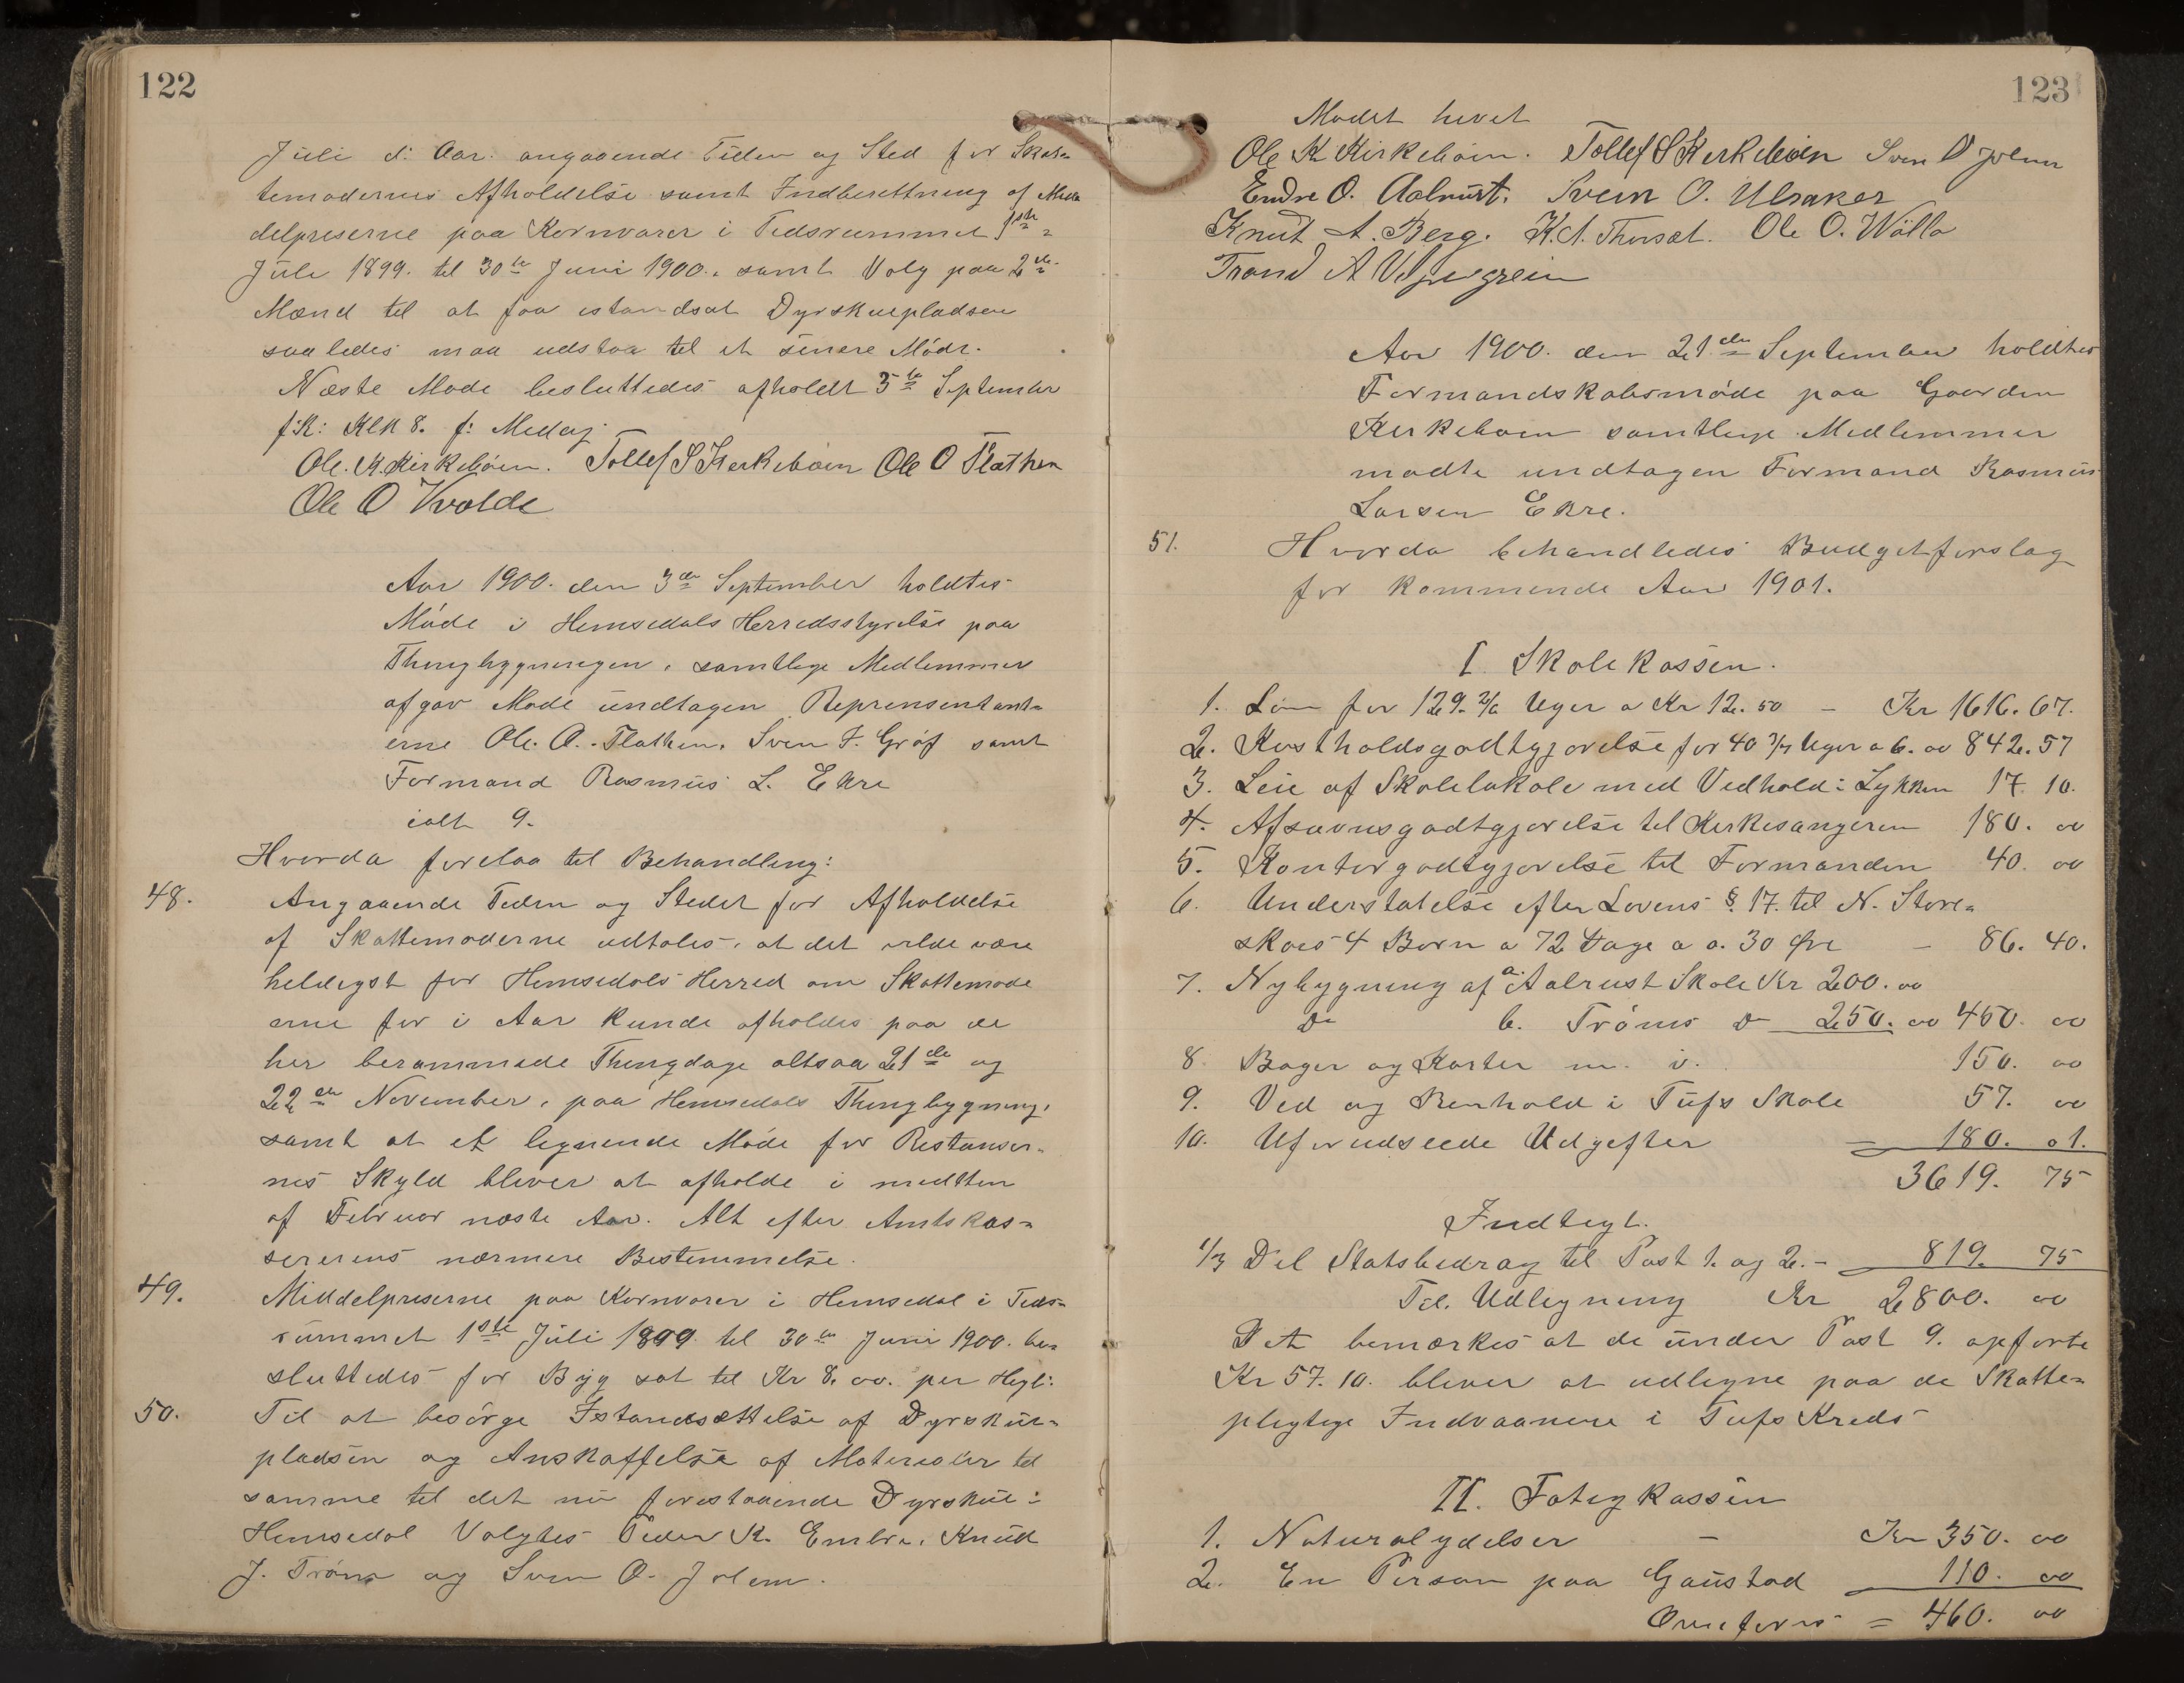 122
Juli d: Aar. angaaende Tiden og Sted for Skat-
temødernes Afholdelse samt Indberettning af Mid-
delpriserne paa Kornvarer i Tidsrummet 1ste
Juli 1899. til 30te Juni 1900., samt Valg paa 2de
Mænd til at faa istandsat Dyrskuepladsen
saaledes maa udstaa til et senere Möde.
Næste Møde besluttedes afholdt 3te September
f:K: Klk 8. f: Medag
Ole. K. Kirkebøen. Tollef S Kirkebøen Ole O Flathen
Ole O Kvolde
Aar 1900. den 3die September holdtes
Möde i Hemsedals Herredsstyrelse paa
Thingbygningen, samtlige Medlemmer
afgav Møde undtagen Reprensentant-
erne Ole. O. Flathen, Sven F. Gröf samt
Formand Rasmus L. Ekre
ialt 9.
Hvorda forelaa til Behandling:
48. Angaaende Tiden og Stedet for Afholdelse
af Skattemøderne udtales, at det vilde være
heldigst for Hemsedals Herred om Skattemøde
erne for i Aar kunde afholdes paa de
her berammede Thingdage altsaa 21de og
22den November, paa Hemsedals Thingbygning,
samt at et lignende Möde for Restanser-
nes Skyld bliver at afholde i midtten
af Februar næste Aar. Alt efter Amtskas-
sererens nærmere Bestemmelse.
49. Middelpriserne paa Kornvarer i Hemsedal i Tids-
rummet 1ste Juli 1899 til 30te Juni 1900. be-
sluttedes for Byg sat til Kr 8.00. per Hegl:
50. Til at besörge Istandsættelse af Dyrskue-
pladsen og Anskaffelse af Materialer til
samme til det nu forestaaende Dyrskue i
Hemsedal Valgtes Peder K. Embre, Knud
J. Tröim og Sven O. Jolem.
123
Mødet hevet
Ole K Kirkebøen. Tollef S Kirkebøen Sven O Jolem
Endre O. Aalrust. Svein O. Ulsaker
Knut A. Berg. K. A. Thorset. Ole O. Wölla
Trond A
Aar 1900. den 21de September holdtes
Formandskabsmøde paa Gaarden
Kirkebøen samtlige Medlemmer
mødte undtagen Formand Rasmus
Larsen Ekre.
51. Hvorda behandledes Budgetforslag
for kommende Aar 1901.
I Skolekassen.
1. Løn for 129. 2/6 Uger a Kr 12.50 - Kr 1616.67.
2. Kostholdsgodtgjørelse for 40 3/7 Uger a 6.00 842.57
3. Leie af Skolelokale med Vedhold i Lykken 17 10.
4. Afsavnsgodtgjørelse til Kirkesangeren 180. 00
5. Kontorgodtgjørelse til Formanden 40. 00
6. Understøtelse efter Lovens §. 17. til N. Store-
skors 4 Børn a 72 Dage a 0.30 Øre - 86. 40.
7. Nybygning af a. Aalrust Skole Kr 200.00
Do b. Tröims Do 250.00 450. 00
8. Bøger og Karter m. v. 150. 00
9. Ved og Renhold i Tufs Skole 57. 00
10. Uforudseede Udgifter = 180. 01.
3619. 75
Indtegt.
1/3 Del Statsbidrag til Post 1. og 2. - 819. 75
Til Udligning Kr 2800. 00
Det bemærkes at de under Post 9. opførte
Kr 57.10. bliver at udligne paa de Skatte-
pligtige Indvaanere i Tufs Kreds
II. Fatigkassen
1. Naturalydelser - Kr 350. 00
2. En Person paa Gaustad 110. 00
Overføres = 460. 00